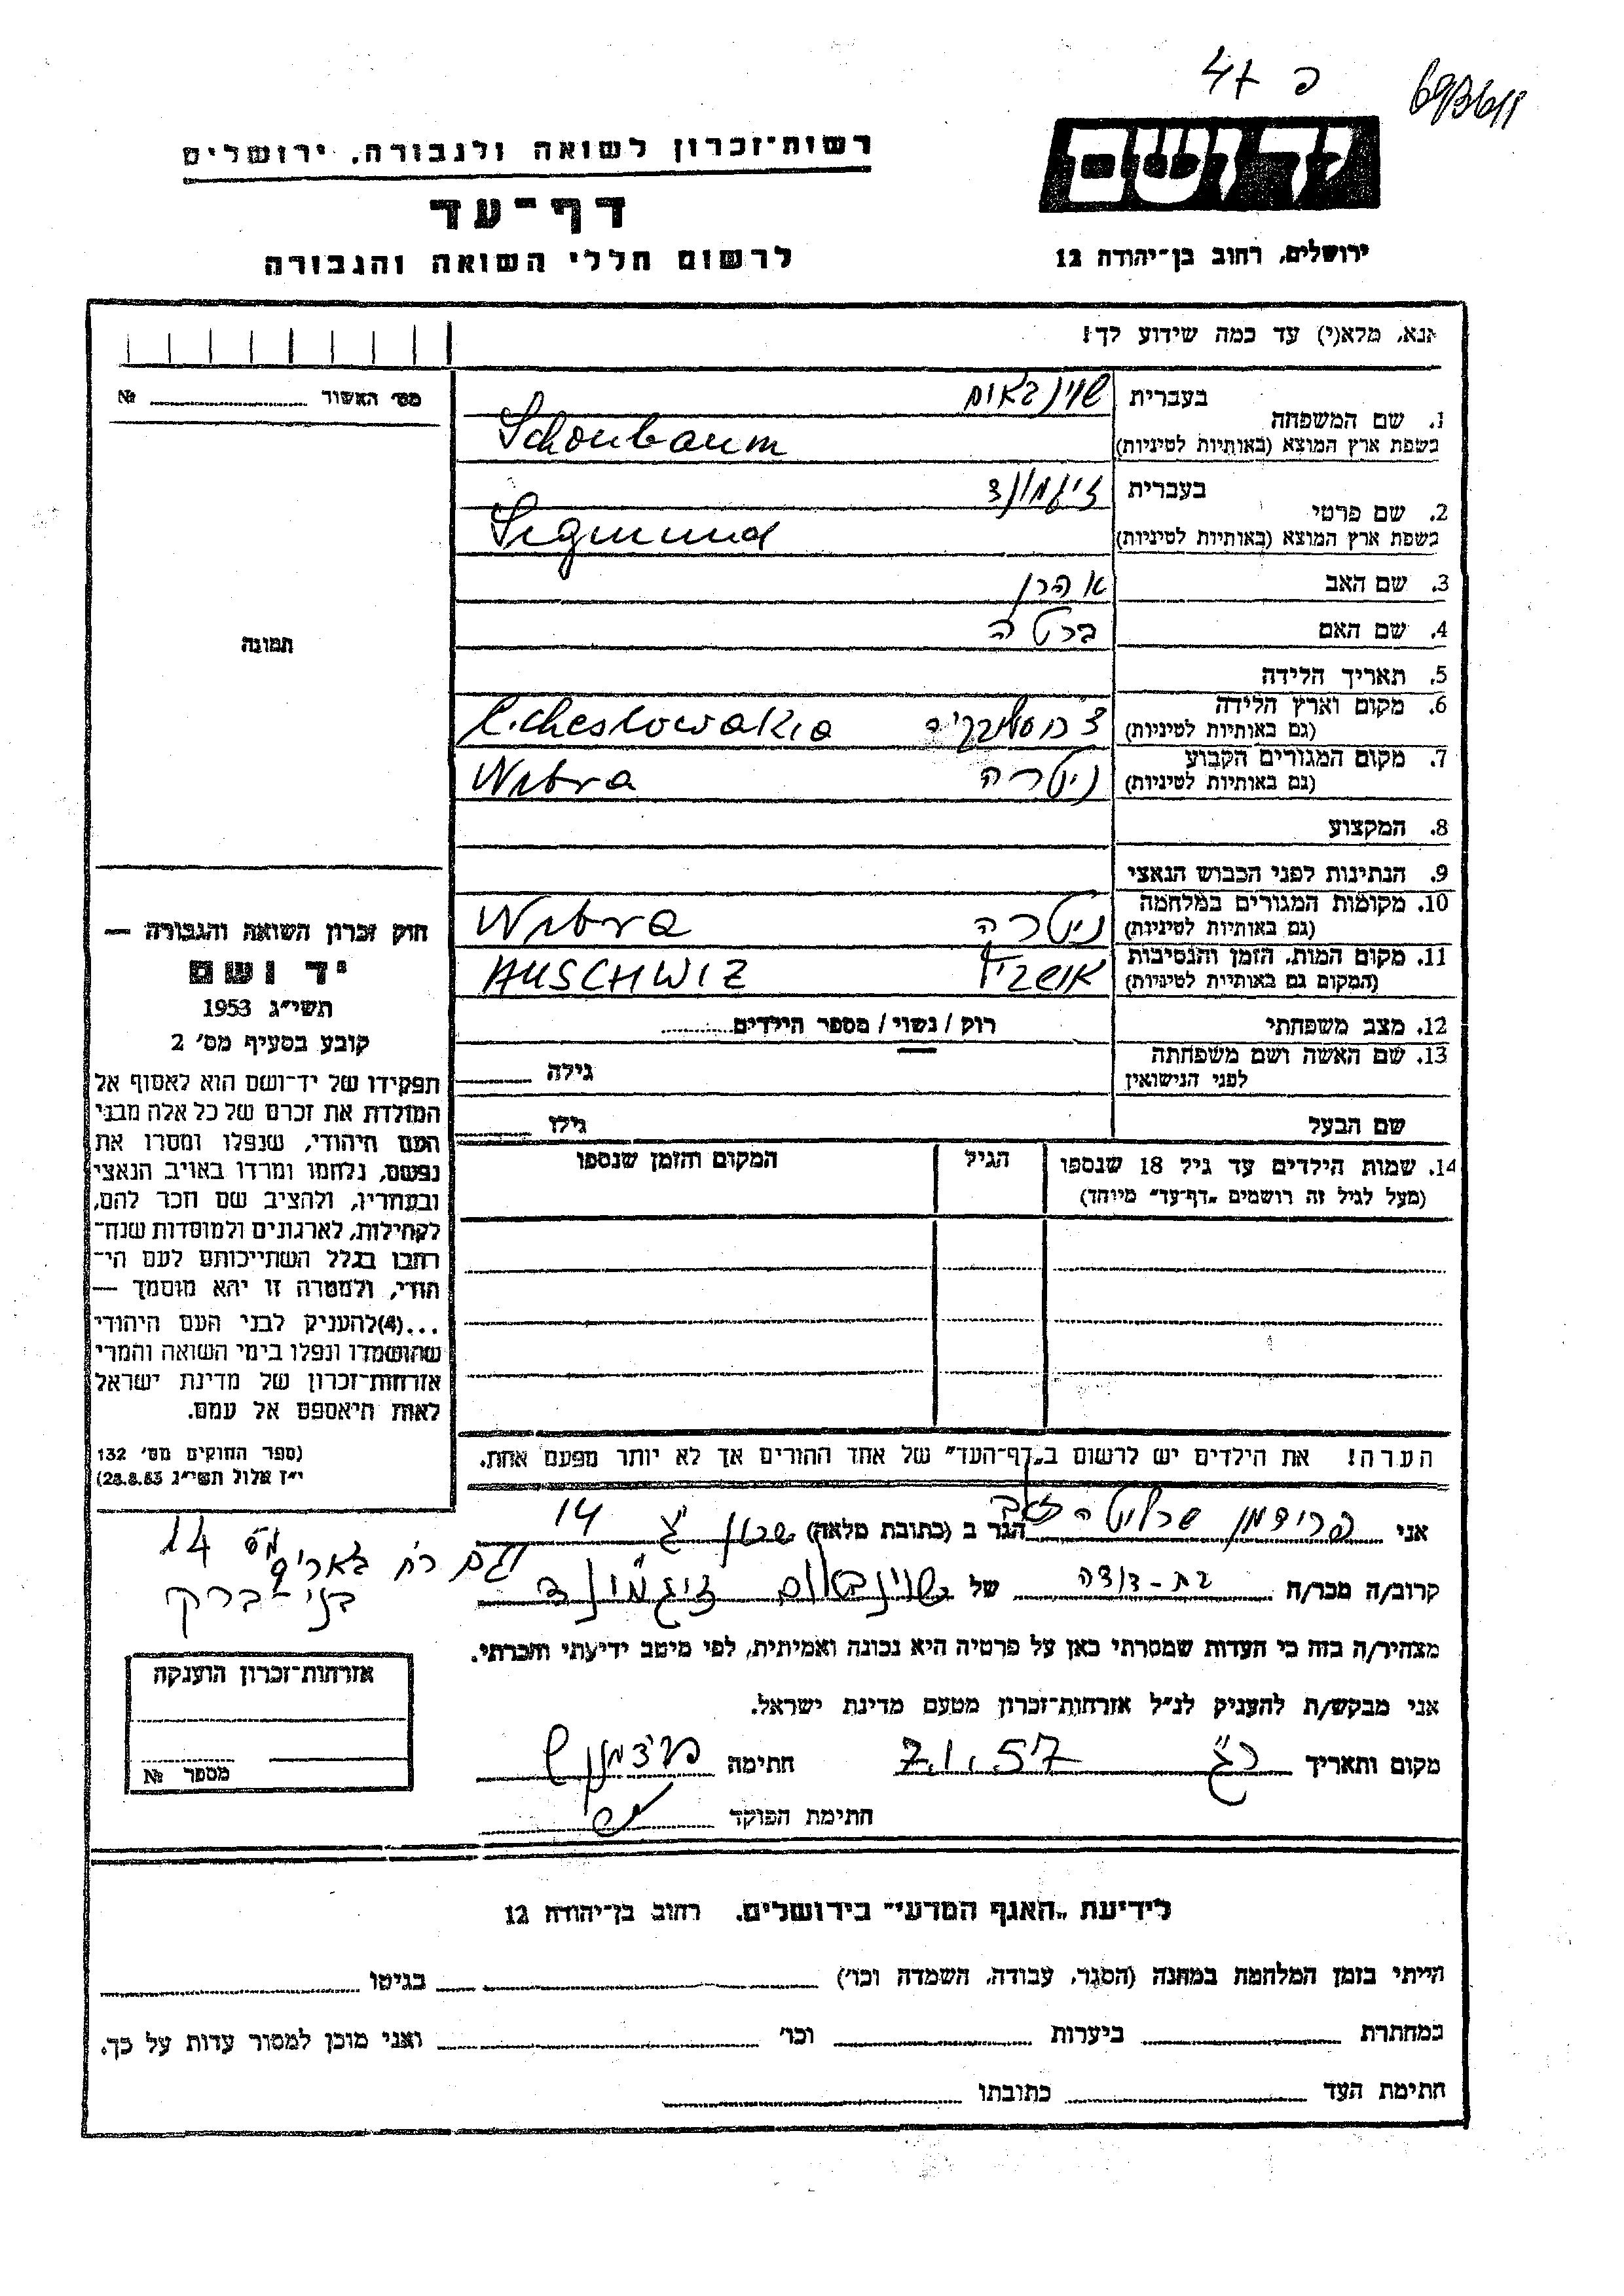 פ 47
רשות־זכרון לשואה ולגבורה, ירושלים
דף־עד
לרשום חללי השואה והגבורה
יד ושם
ירושלים, רחוב בן־יהודה 12
אנא, מלא(י) עד כמה שידוע לך!
מס׳ האשור № 
בעברית שוינבאום
1. שם המשפחה
בשפת ארץ המוצא (באותיות לטיניות) Schonbaum
בעברית זיגמונד
2. שם פרטי
בשפת ארץ המוצא (באותיות לטיניות) Sigmund
3. שם האב אהרן
4. שם האם ברטה
תמונה
5. תאריך הלידה
6. מקום וארץ הלידה
(גם באותיות לטיניות) Cheslowakia
7. מקום המגורים הקבוע
(גם באותיות לטיניות) ניטרה Nitra
8. המקצוע
9. הנתינות לפני הכבוש הנאצי
10. מקומות המגורים במלחמה
(גם באותיות לטיניות) ניטרה Nitra
11. מקום המות, הזמן והנסיבות
(המקום גם באותיות לטיניות) אושביץ AUSCHWIZ
12. מצב משפחתי רוק / נשוי / מספר הילדים
13. שם האשה ושם משפחתה
לפני הנישואין גילה
שם הבעל גילו
14. שמות הילדים עד גיל 18 שנספו הגיל המקום והזמן שנספו
(מעל לגיל זה רושמים „דף־עד״ מיוחד)
חוק זכרון השואה והגבורה —
יד ושם
תשי״ג 1953
קובע בסעיף מס׳ 2
תפקידו של יד־ושם הוא לאסוף אל
המולדת את זכרם של כל אלה מבני
העם היהודי, שנפלו ומסרו את
נפשם, נלחמו ומרדו באויב הנאצי
ובעוזריו, ולהציב שם וזכר להם,
לקהילות, לארגונים ולמוסדות שנח־
רבו בגלל השתייכותם לעם הי־
הודי, ולמטרה זו יהא מוסמך —
...(4)להעניק לבני העם היהודי
שהושמדו ונפלו בימי השואה והמרי
אזרחות־זכרון של מדינת ישראל
לאות היאספם אל עמם.
(ספר החוקים מס׳ 132
י״ז אלול תשי״ג 28.8.53)
הערה! את הילדים יש לרשום ב„דף־העד״ של אחד ההורים אך לא יותר מפעם אחת.
אני פרידמן שרלוטה הגר ב (כתובת מלאה) 14
מס 14
בני-ברק
קרוב/ה מכר/ה בת-דודה של שוינבאום זיגמונד
מצהיר/ה בזה כי העדות שמסרתי כאן על פרטיה היא נכונה ואמיתית, לפי מיטב ידיעתי והכרתי.
אני מבקש/ת להעניק לנ״ל אזרחות־זכרון מטעם מדינת ישראל.
מקום ותאריך 7.1.57 חתימה
חתימת הפוקד
אזרחות־זכרון הוענקה
מספר №
לידיעת „האגף המדעי״ בירושלים, רחוב בן־יהודה 12
הייתי בזמן המלחמה במחנה (הסגר, עבודה, השמדה וכו׳) בגיטו
במחתרת ביערות וכו׳ ואני מוכן למסור עדות על כך.
חתימת העד כתובתו